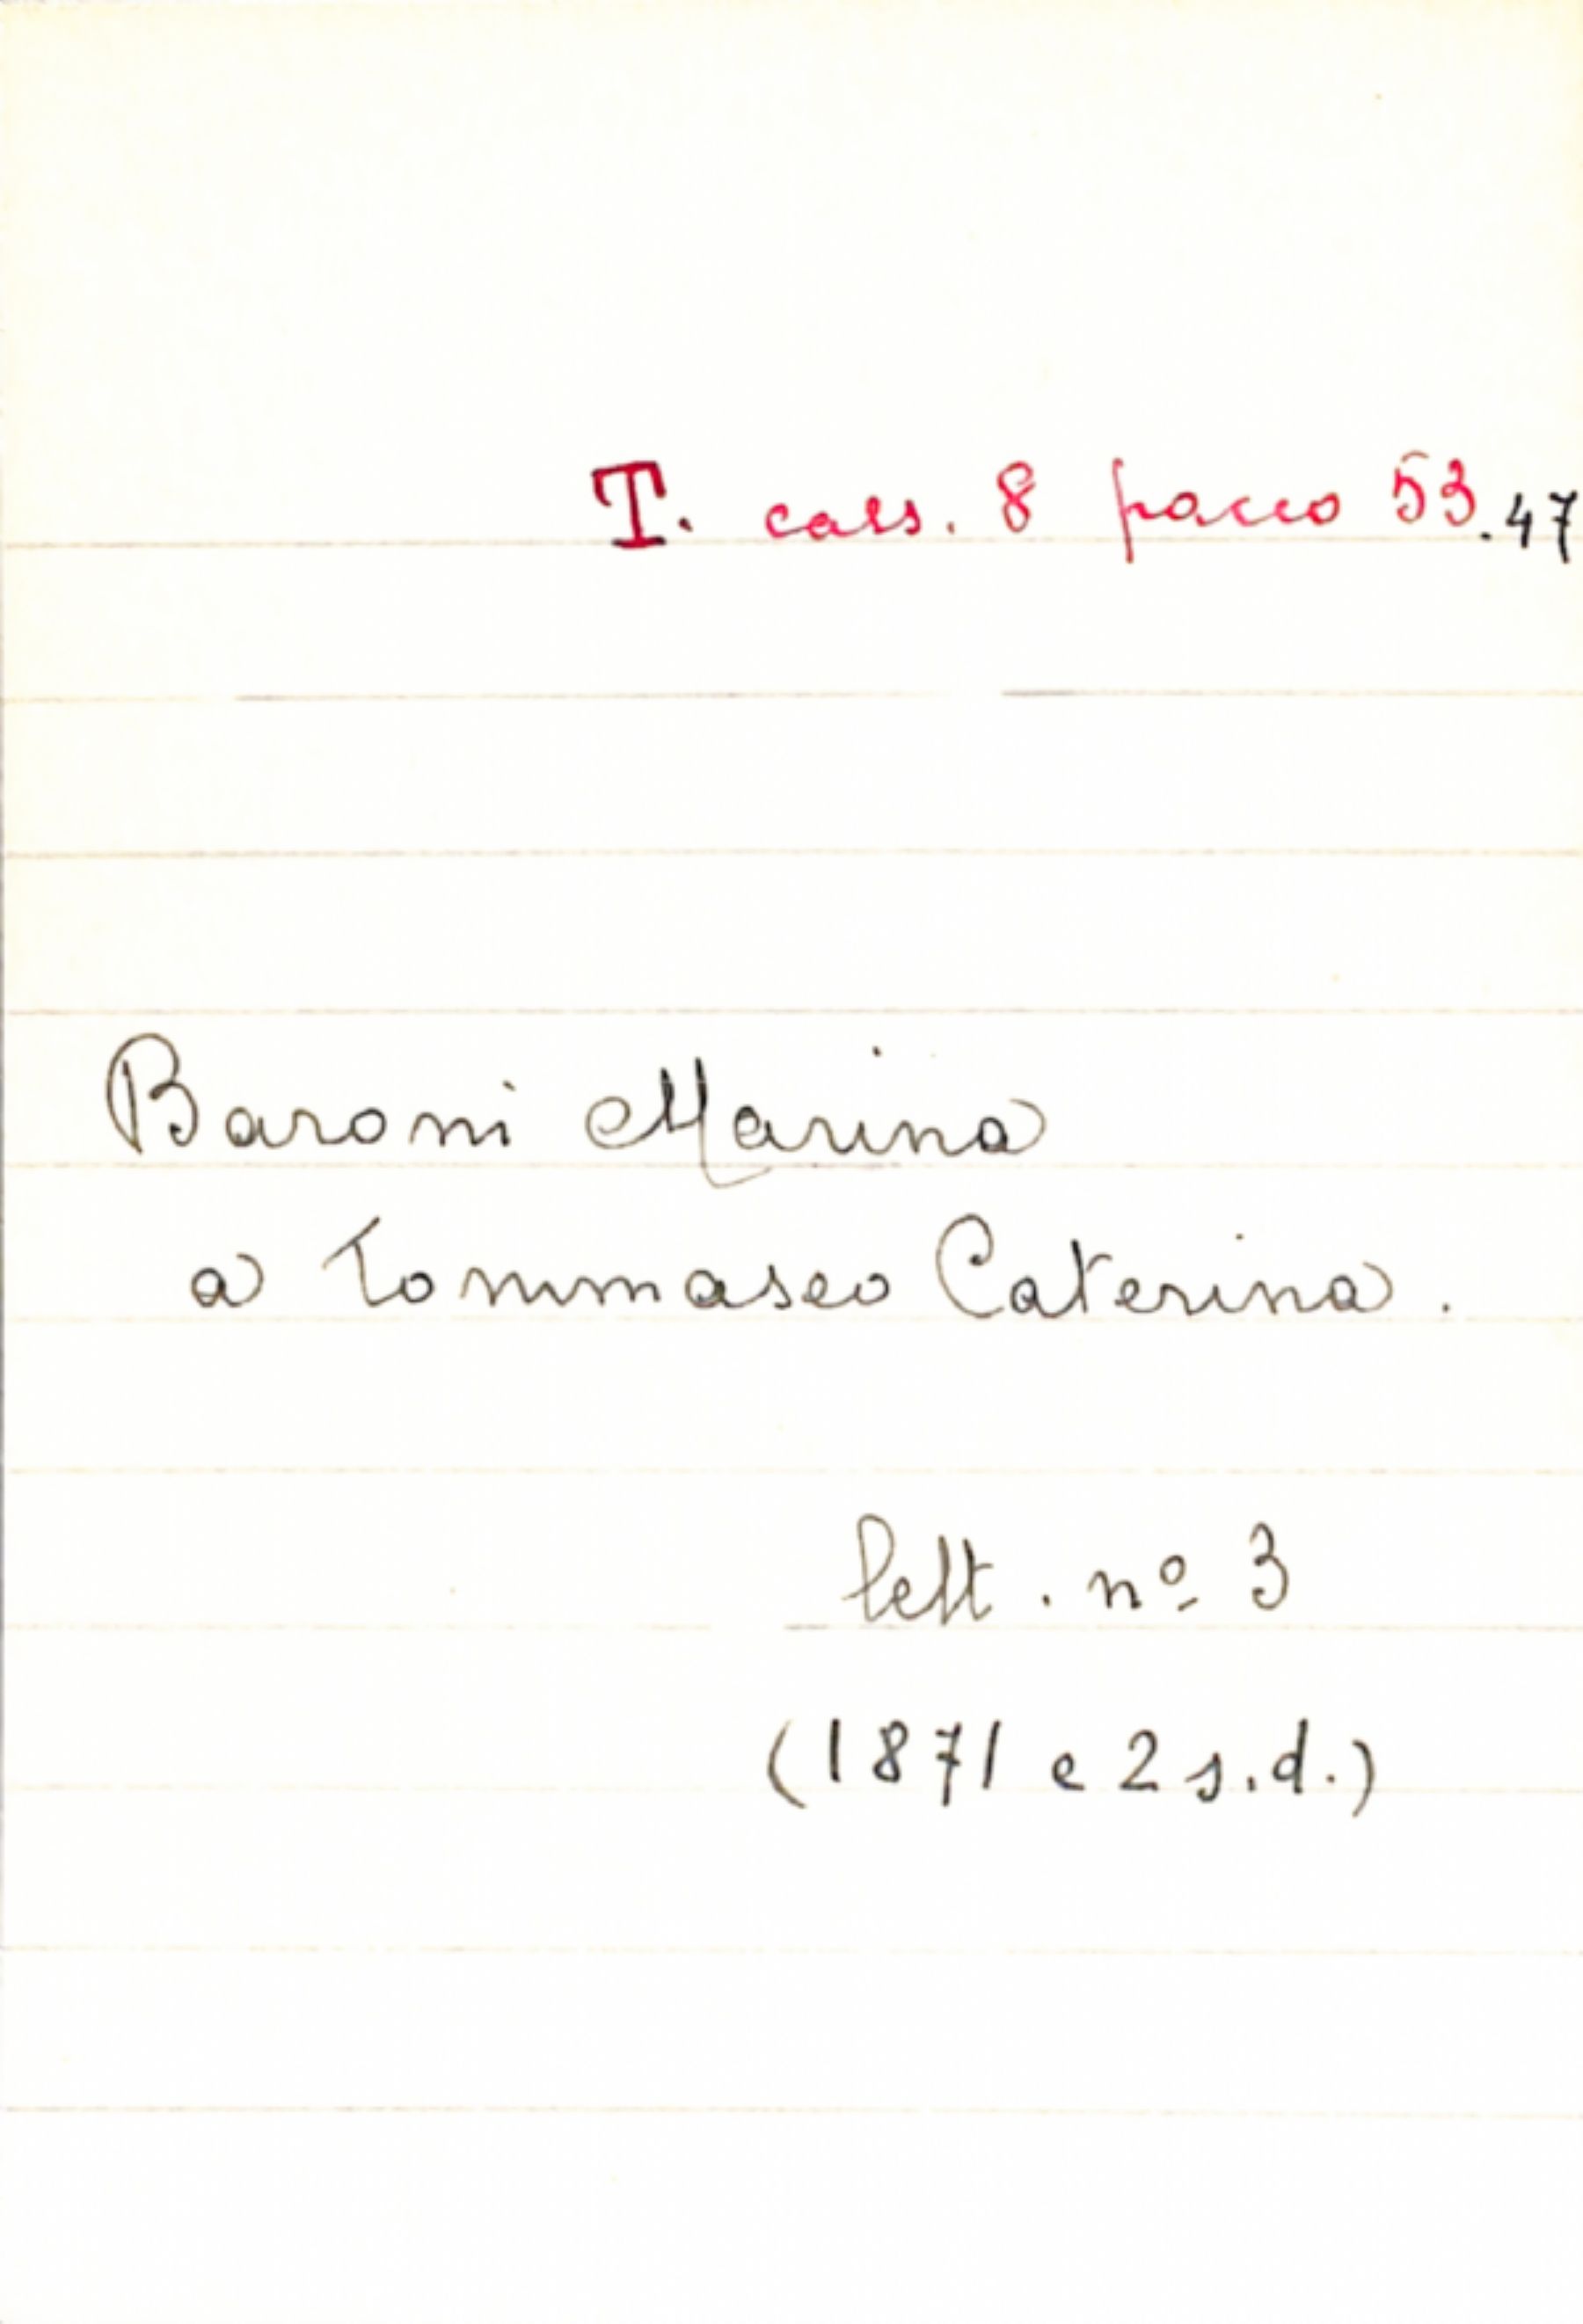 T. cass. 8 pacco 53.47
Baroni Marina
a Tommaseo Caterina.
lett. nº 3
(1871 e 2 s.d.)